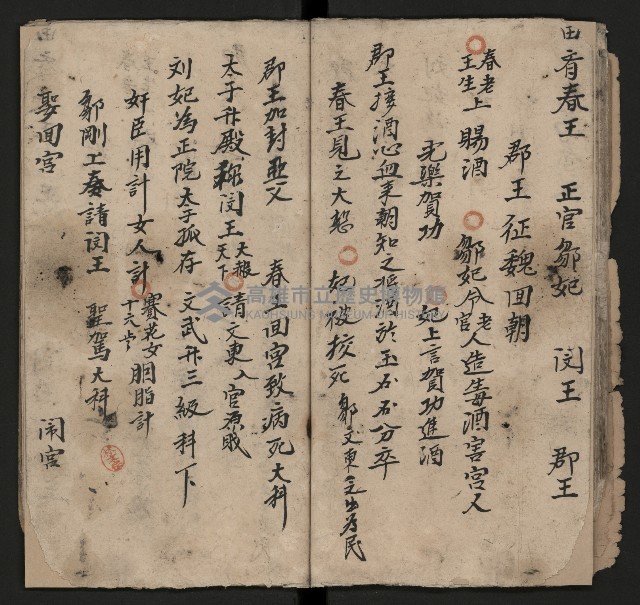 田有春王 正宫鄒妃 閔王 郡王
郡王征魏回朝
春老王生上 賜酒 鄒妃令老官人造毒酒害宮人
光樂賀功 妃上言賀功進酒
郡王接酒心血来朝知之 酒於玉石石分卒
春王見之大怒 奴役 死 鄒文東 出為民
郡王加封亜父 春王回宮致病死大科
太子升殿 称閔王 大赦天下 請文東入官原职
刘妃為正院太子孤存 文武升三級科下
奸臣用計女人計 賽花女胭脂計
十六岁
郭剛上奏請閔王 聖駕大科
娶回宫 闹宫
高雄市立歷史博物館
KAOHSIUNG MUSEUM OF HISTORY